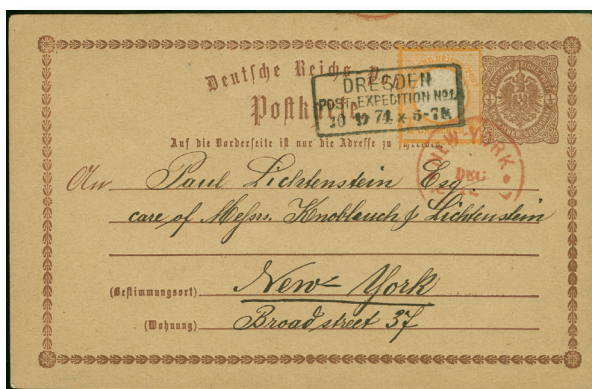 Deutsche Reichs-Post
Postkarte
DRESDEN
POST-EXPEDITION No 1
10 12 74 5-7N
Auf die Vorderseite ist nur die Adresse zu schreiben.
NEW-YORK
DEC
An Paul Lichtenstein Esq.
care of Messrs. Knoblauch & Lichtenstein
(Bestimmungsort) New-York
(Wohnung) Broadstreet 37